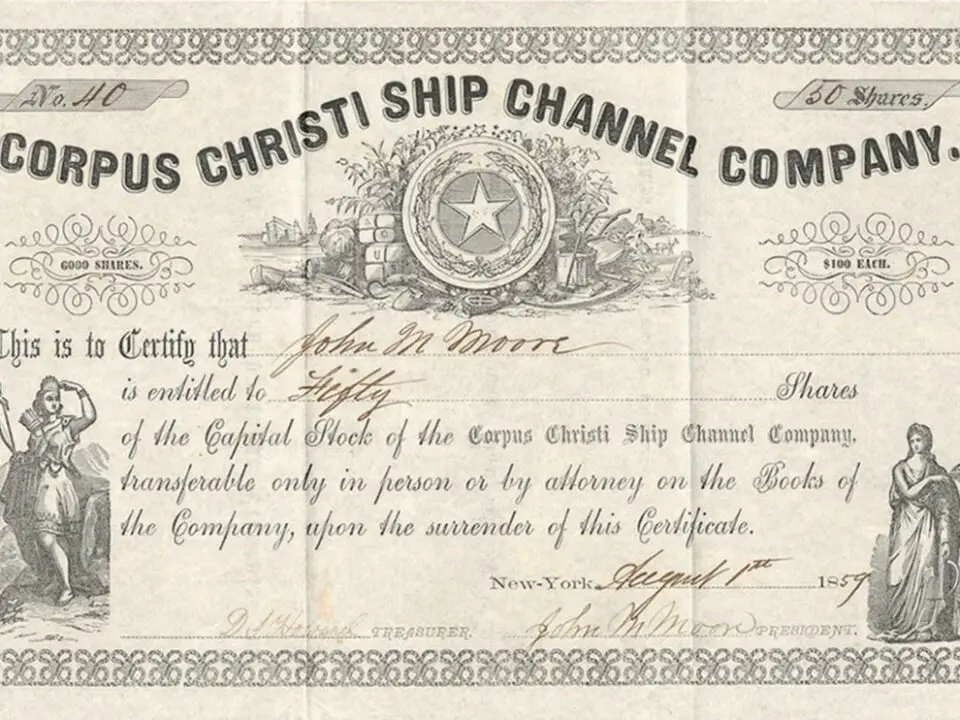 No. 40
50 Shares.
CORPUS CHRISTI SHIP CHANNEL COMPANY.
6000 SHARES.
$100 EACH.
This is to Certify that John M Moore
is entitled to Fifty Shares
of the Capital Stock of the Corpus Christi Ship Channel Company,
transferable only in person or by attorney on the Books of
the Company, upon the surrender of this Certificate.
New-York, August 1st 1859
TREASURER. John M Moore PRESIDENT.